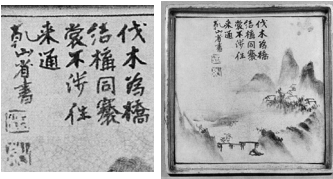 伐木為橋
結構同褰
裳不涉往
来通
乾山省書
伐木為橋
結構同褰
裳不涉往
来通
乾山省書